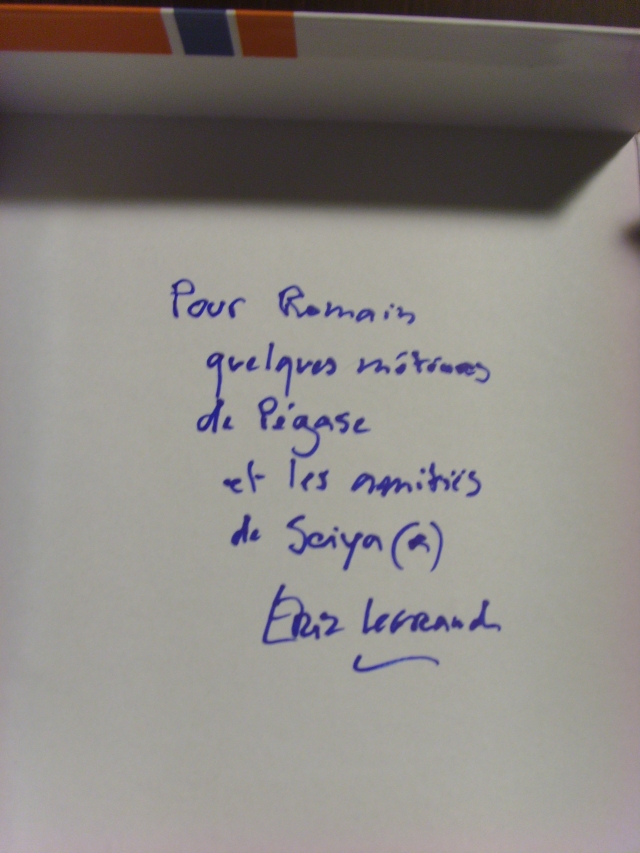 Pour Romain
quelques météores
de Pégase
et les amitiés
de Seiya (a)
Eric Legrand